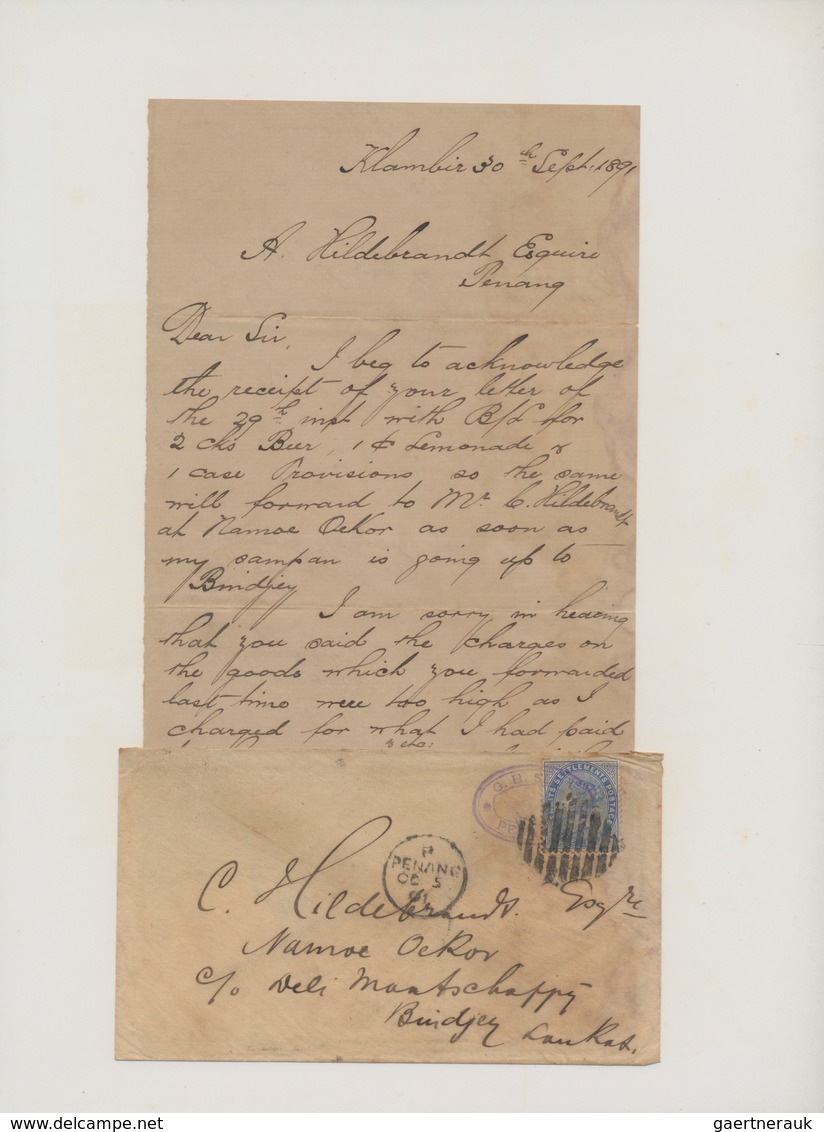 Klambir 30th Sept. 1891
A. Hildebrandt Esquire
Penang
Dear Sir,
I beg to acknowledge
the receipt of your letter of
the 29th inst with B/L for
2 cks Beer, 1 Lemonade &
1 case Provisions so the same
will forward to Mr C. Hildebrandt
at Namoe Oekor as soon as
my sampan is going up to
Bindjey
I am sorry in hearing
that you said the charges on
the goods which you forwarded
last time were too high as I
charged for what I had paid
G. H. S
PE
TS SETTLEMENTS POSTAGE
P
PENANG
OC 5
91
C. Hildebrandt. Esqre
Namoe Oekor
c/o Deli Maatschappy
Bindjey
Lankat.
gaertnerauk